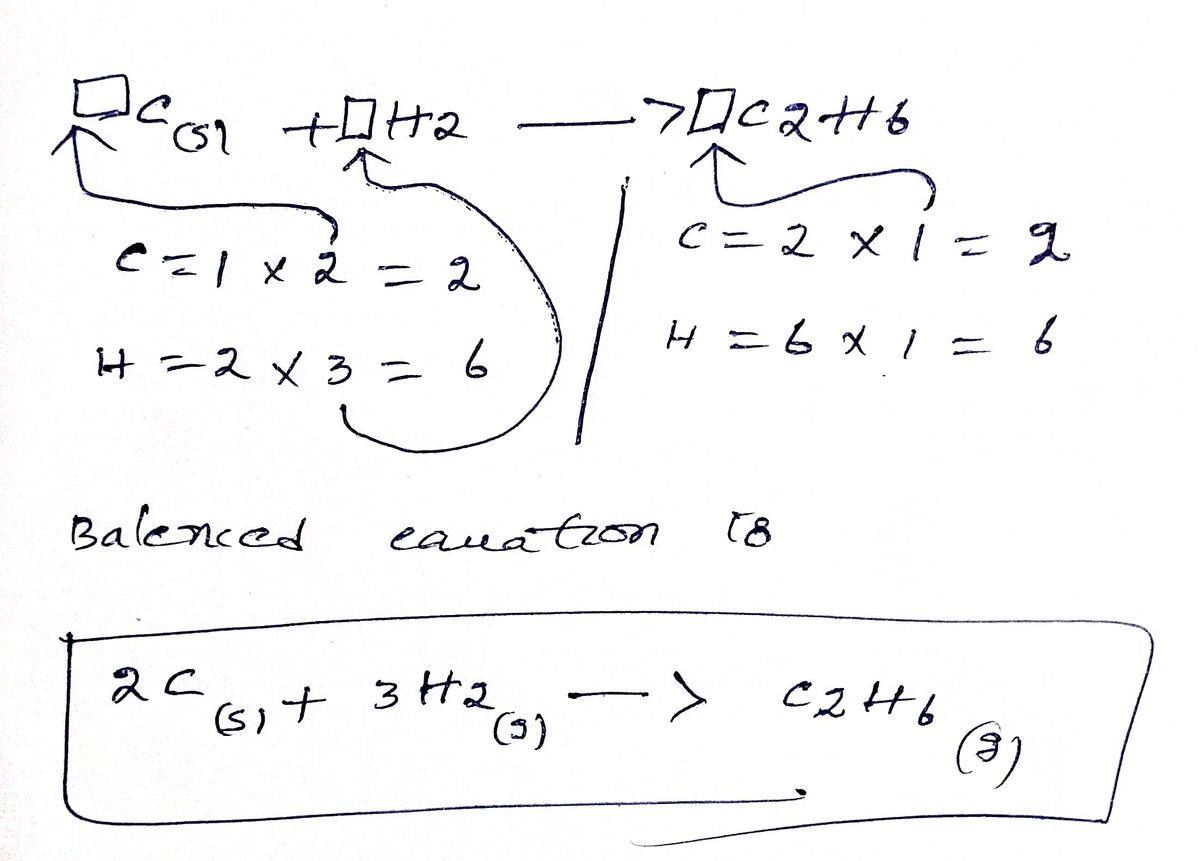 □C(s) + □H2 —> □C2H6
C = 1 x 2 = 2
H = 2 x 3 = 6
C = 2 x 1 = 2
H = 6 x 1 = 6
Balenced equation is
2C(s) + 3H2(g) —> C2H6(g)